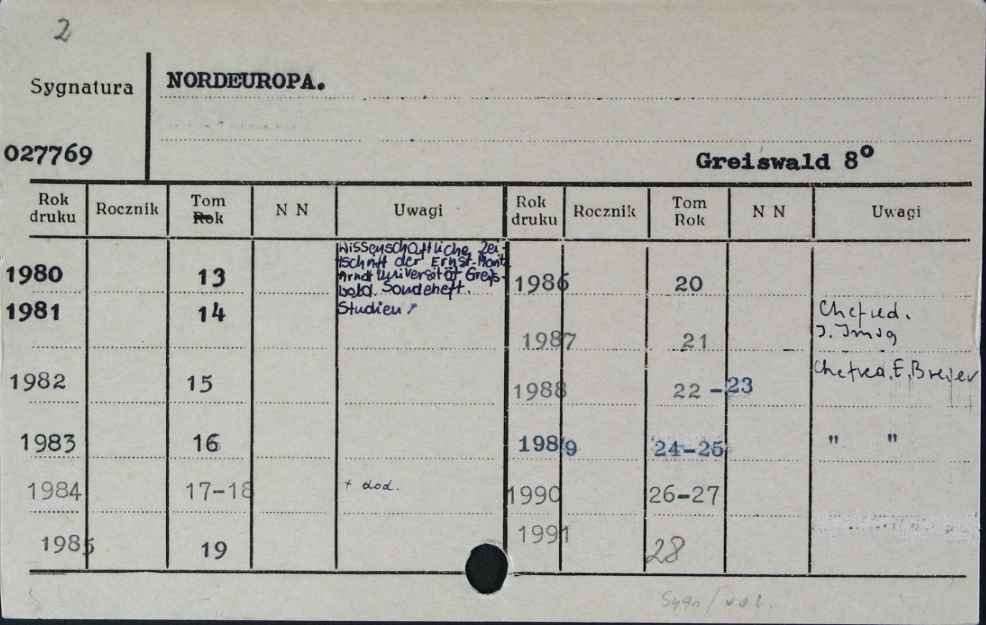 2
Sygnatura NORDEUROPA.
027769 Greiswald 8º
Rok druku Rocznik Tom Rok N N Uwagi Rok druku Rocznik Tom Rok N N Uwagi
1980 13 Wissenschaftliche Zei-
tschrift der Ernst-Moritz
Arndt Universität Greifs-
wald. Sondeheft.
1981 14 Studien
1982 15
1983 16
1984 17-18 + dod.
1985 19
1986 20
1987 21 Chefred.
J. Imsg
1988 22-23 Chefred. E. Brejer
1989 24-25 " "
1990 26-27
1991 28